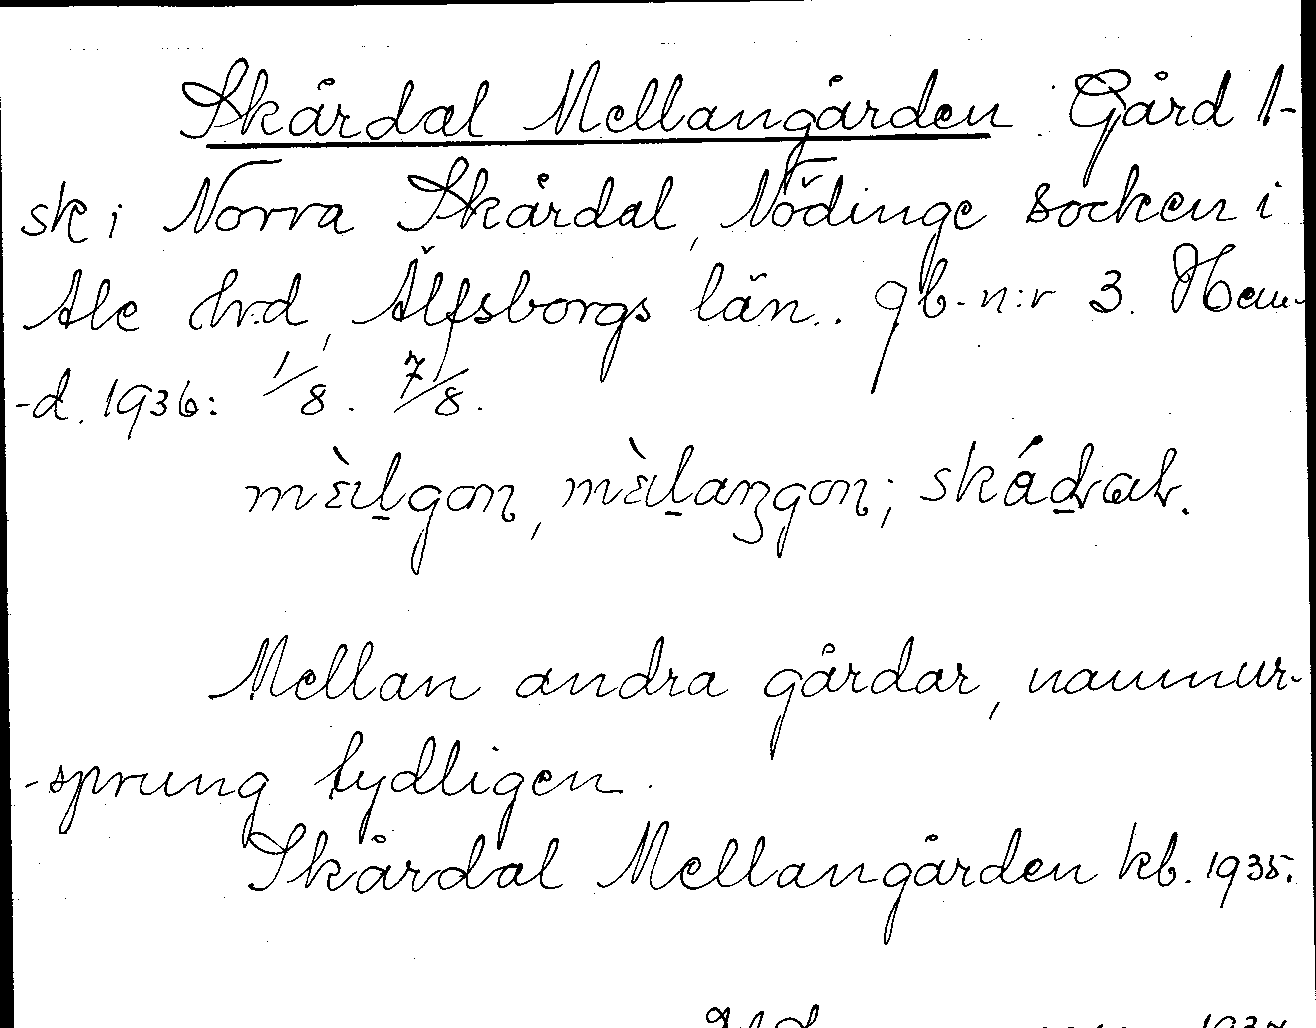 Skårdal Mellangården. Gård 1-
sk i Norra Skårdal, Nödinge socken i
Ale hrd, Älfsborgs län.. gb-n:r 3. Hem-
-d. 1936: 1/8. 7/8.
Mellan andra gårdar, namnur-
-sprung tydligen.
Skårdal Mellangården kb. 1935.